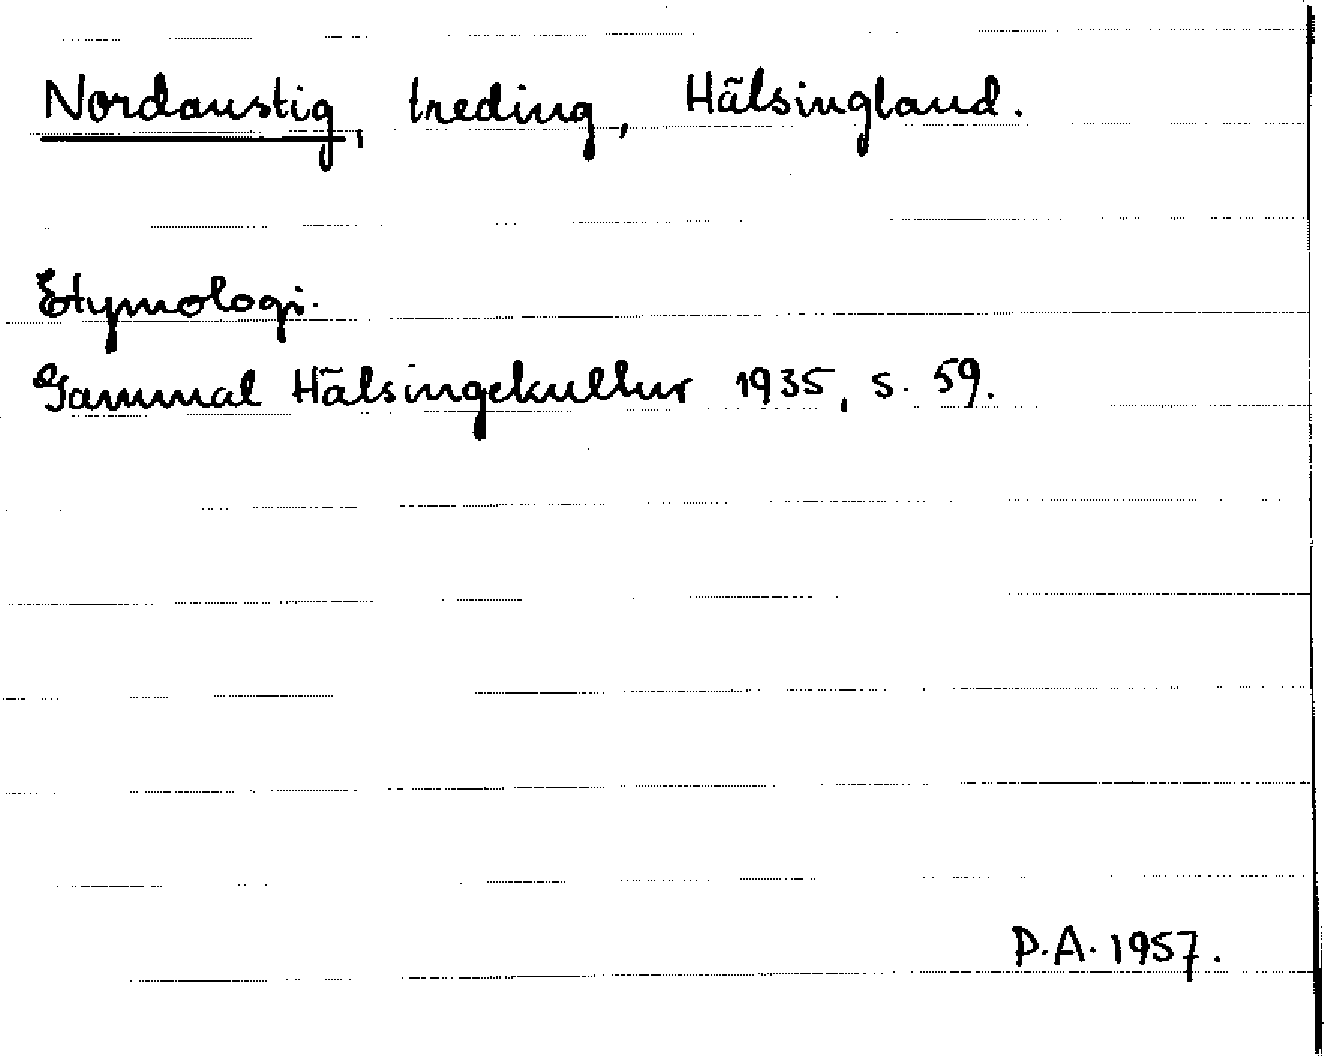 Nordanstig, treding, Hälsingland.
Etymologi.
Gammal Hälsingekultur 1935, s. 59.
P.A. 1957.